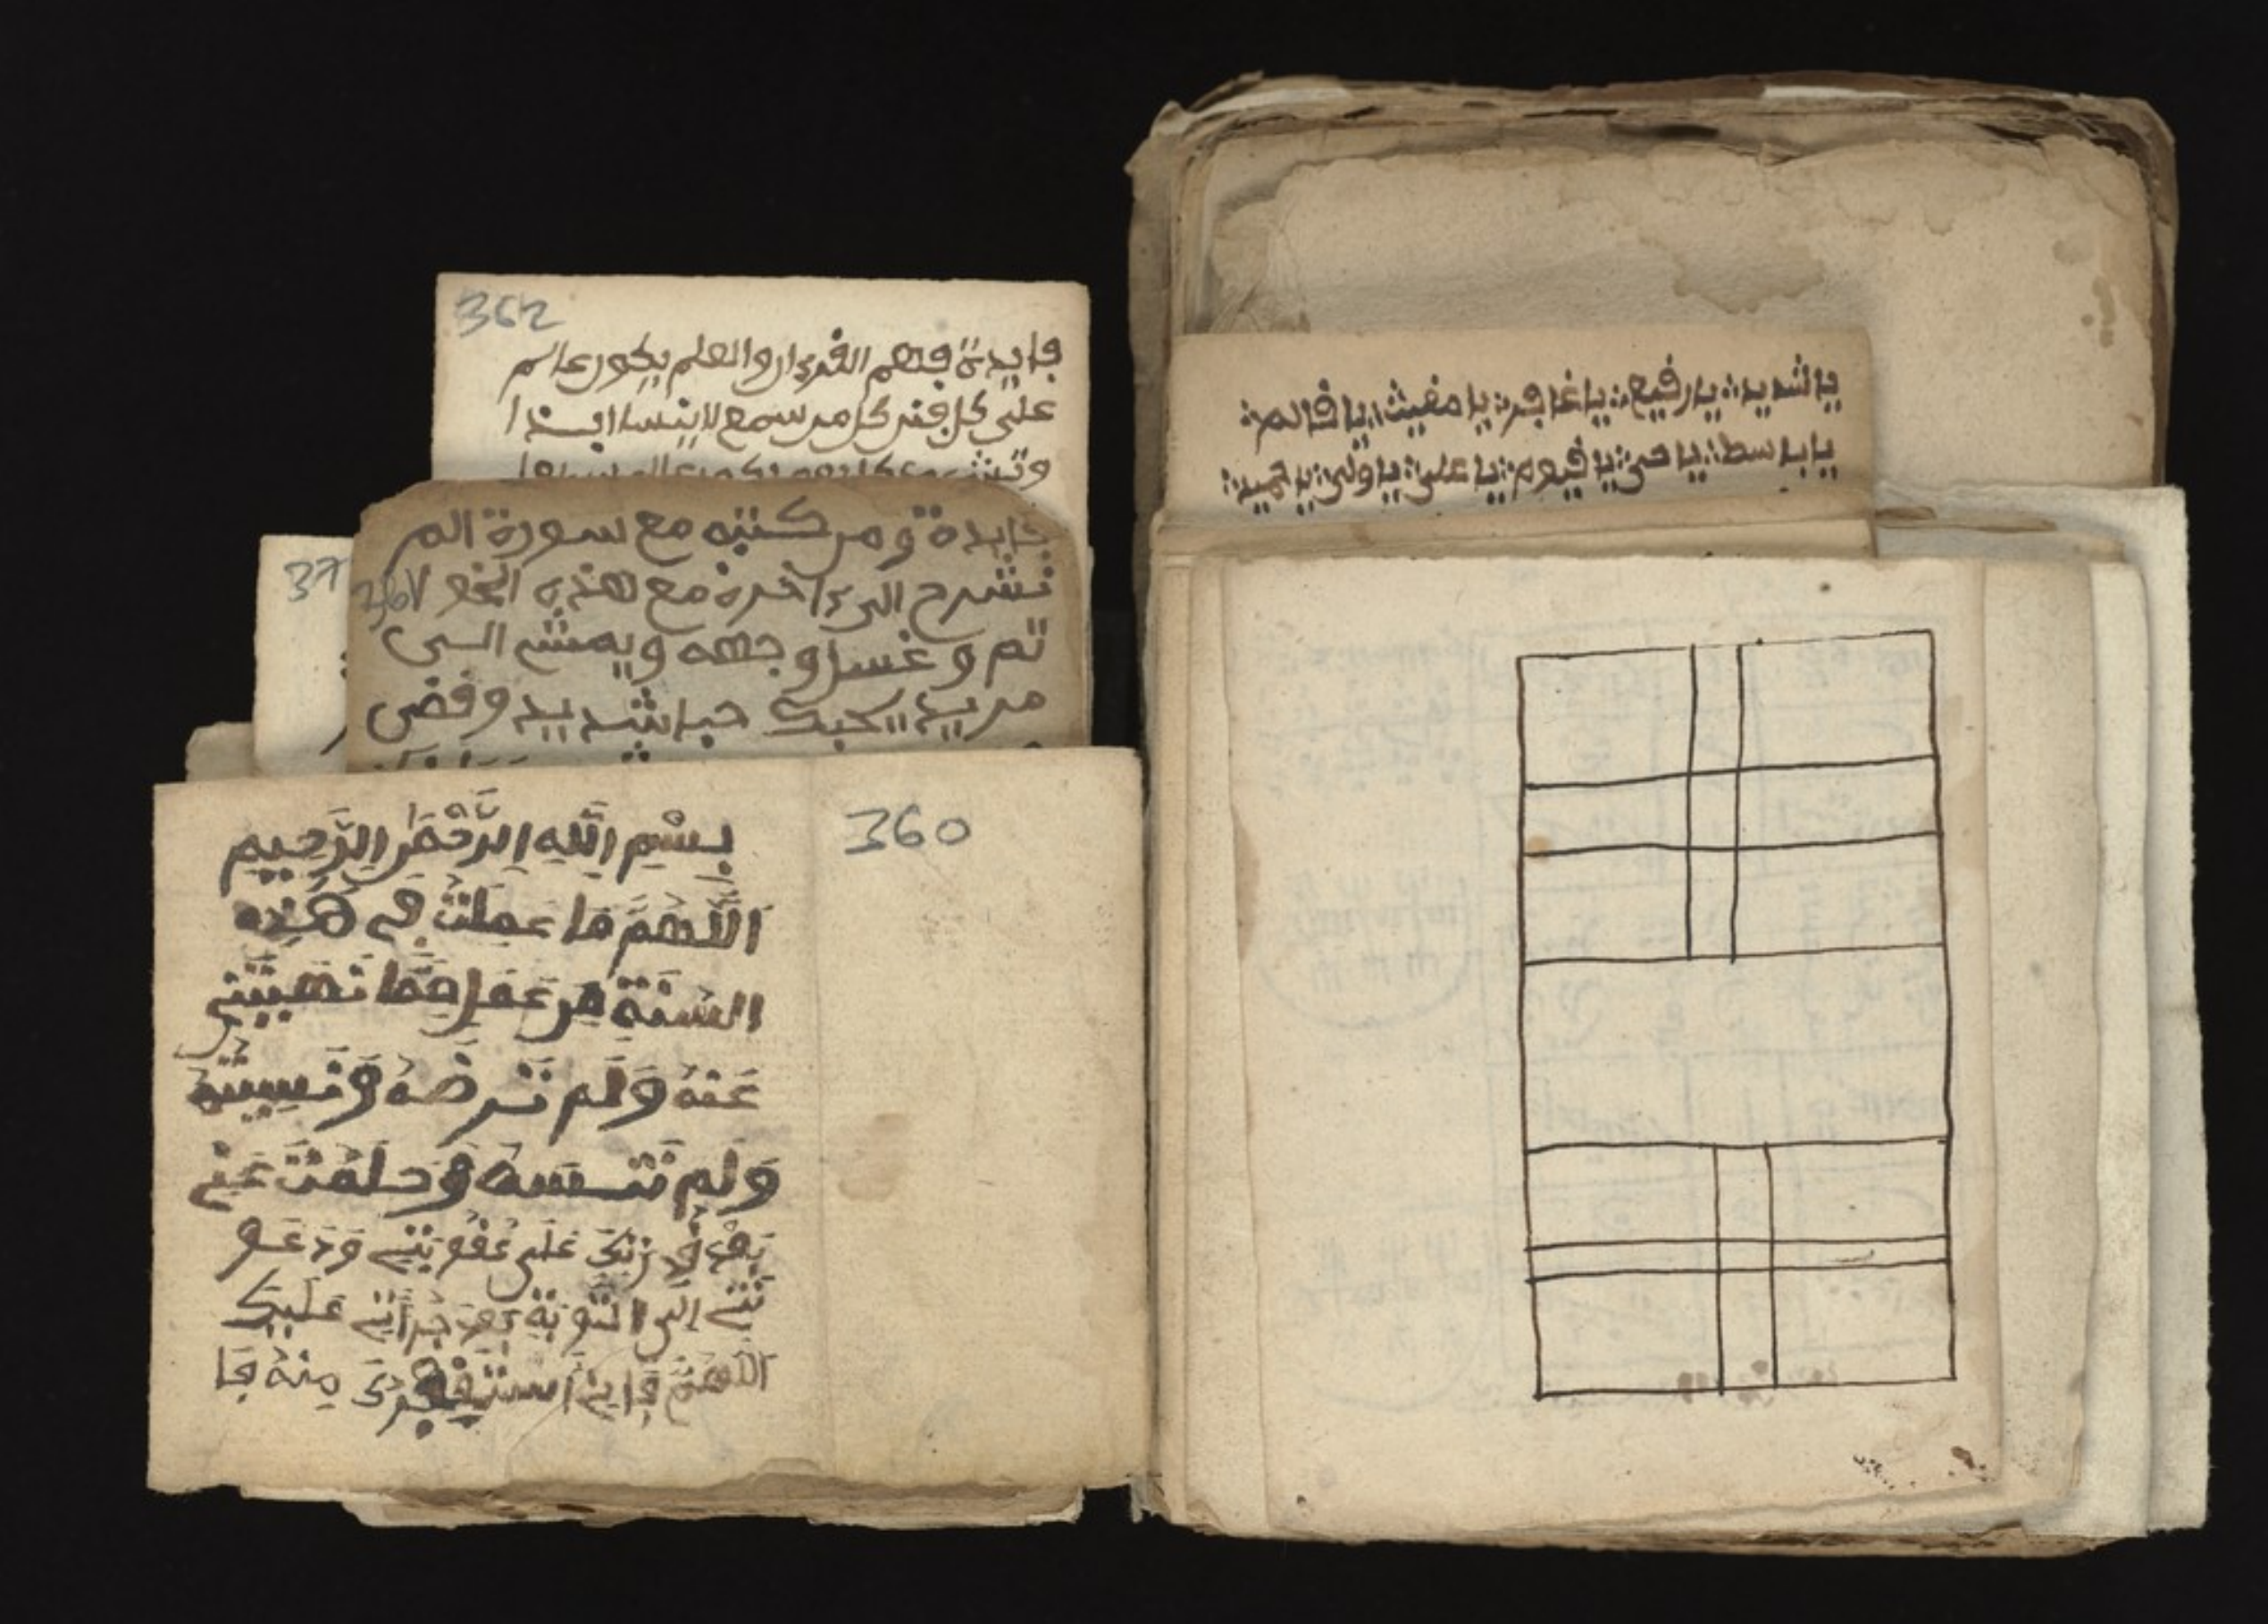 362
فايدة فهم القرءان والعلم يكون عاسم
علي كل
فايدة ومن كتبه مع سورة الم
367
نشرح الى ءاخره مع هذه
ثم وغسل وجهه ويمش الى
من يريد يحبك حبا شديد وقضى
37
360
بِسْمِ اِللَّهِ اِلرَّحْمَنِ اِلرَّحِيمِ
اَللَّهُمَّ مَا عَمِلْتُ فِي هَذِهِ
السَّنَةِ مِن عَمَلٍ مِمَّا نَهَيْتَنِي
عَنْهُ وَلَم تَرضَهُ وَنَسِيتُهُ
وَلَم تَنسَهُ وَحَلَمْتَ عَنِّي
بَعْدَ قُدرَتِكَ عَلَى عُقُوبَتِي وَدَعَو
تَنِي إِلَى التَّوْبَةِ بَعْدَ جُرْأَتِي عَلَيْكَ
اللَّهُمَّ فَإِنِّي أَسْتَغْفِرُكَ مِنْهُ فَا
يا شديد يا رفيع يا غافر يا مغيث يا
يا باسط يا حي يا قيوم يا علي يا ولي يا حميد